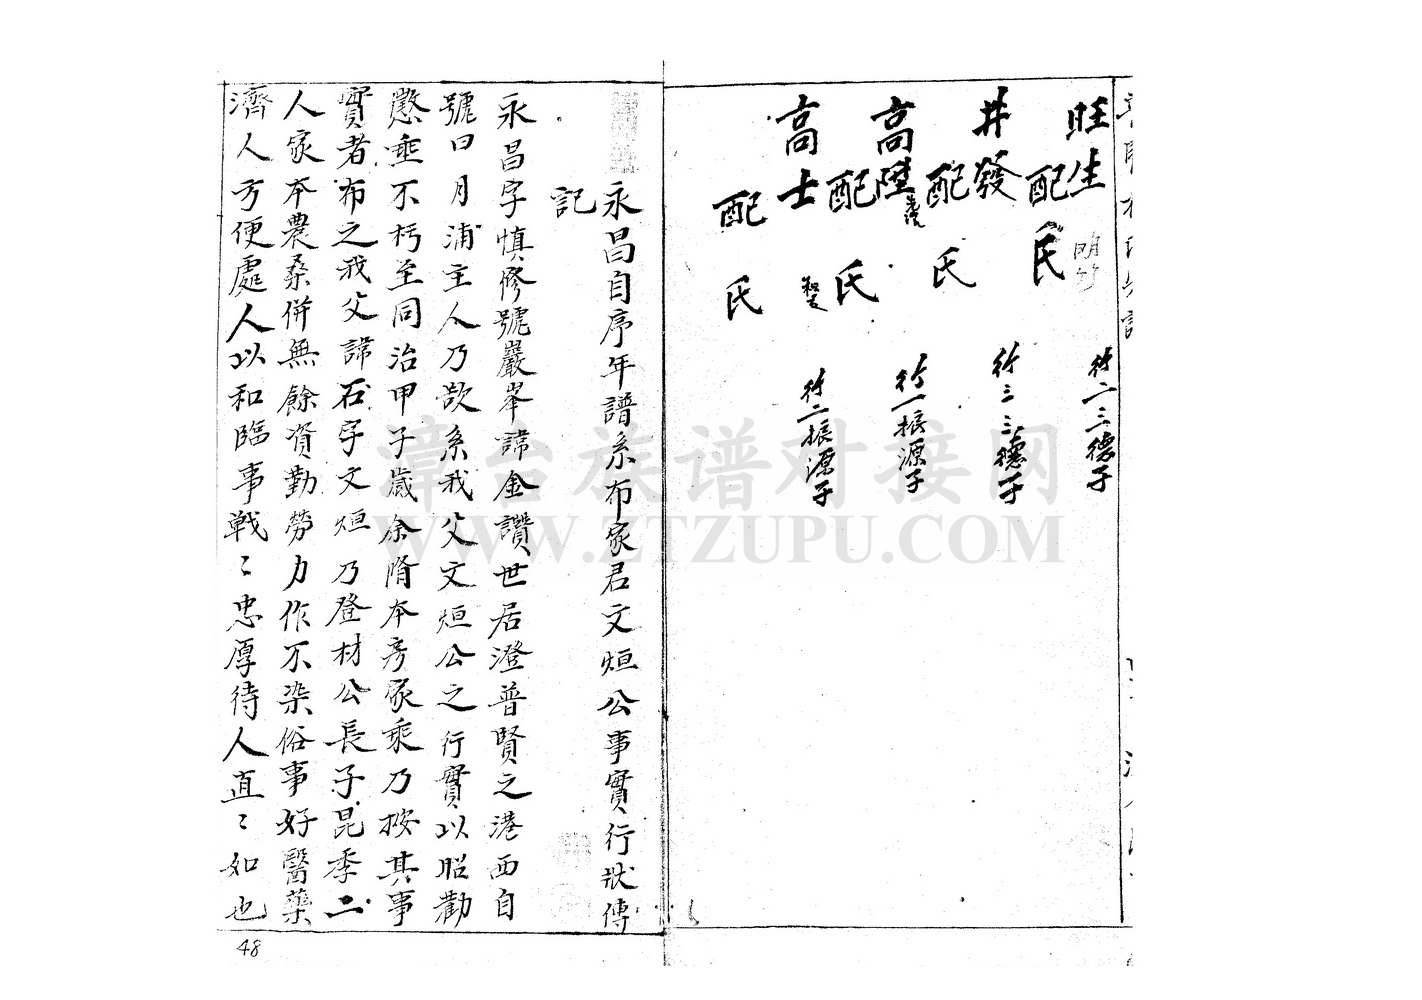 旺生 行二三德子
配氏
井發 行三三德子
配氏
高陞 行一振源子
配氏
高士 行二振源子
配氏
永昌自序年譜系布家君文烜公事實行狀傳
記
永昌字慎修號嚴峯諱金讚世居澄普賢之港西自
號曰月浦主人乃歆系我父文烜公之行實以昭勸
懲垂不朽至同治甲子歲余脩本房家乘乃按其事
實者布之我父諱石字文烜乃登材公長子昆季二
人家本農桑併無餘資勤勞力作不染俗事好醫藥
濟人方便處人以和臨事戰〻忠厚待人直〻如也
48
漳台族谱对接网
WWW.ZTZUPU.COM